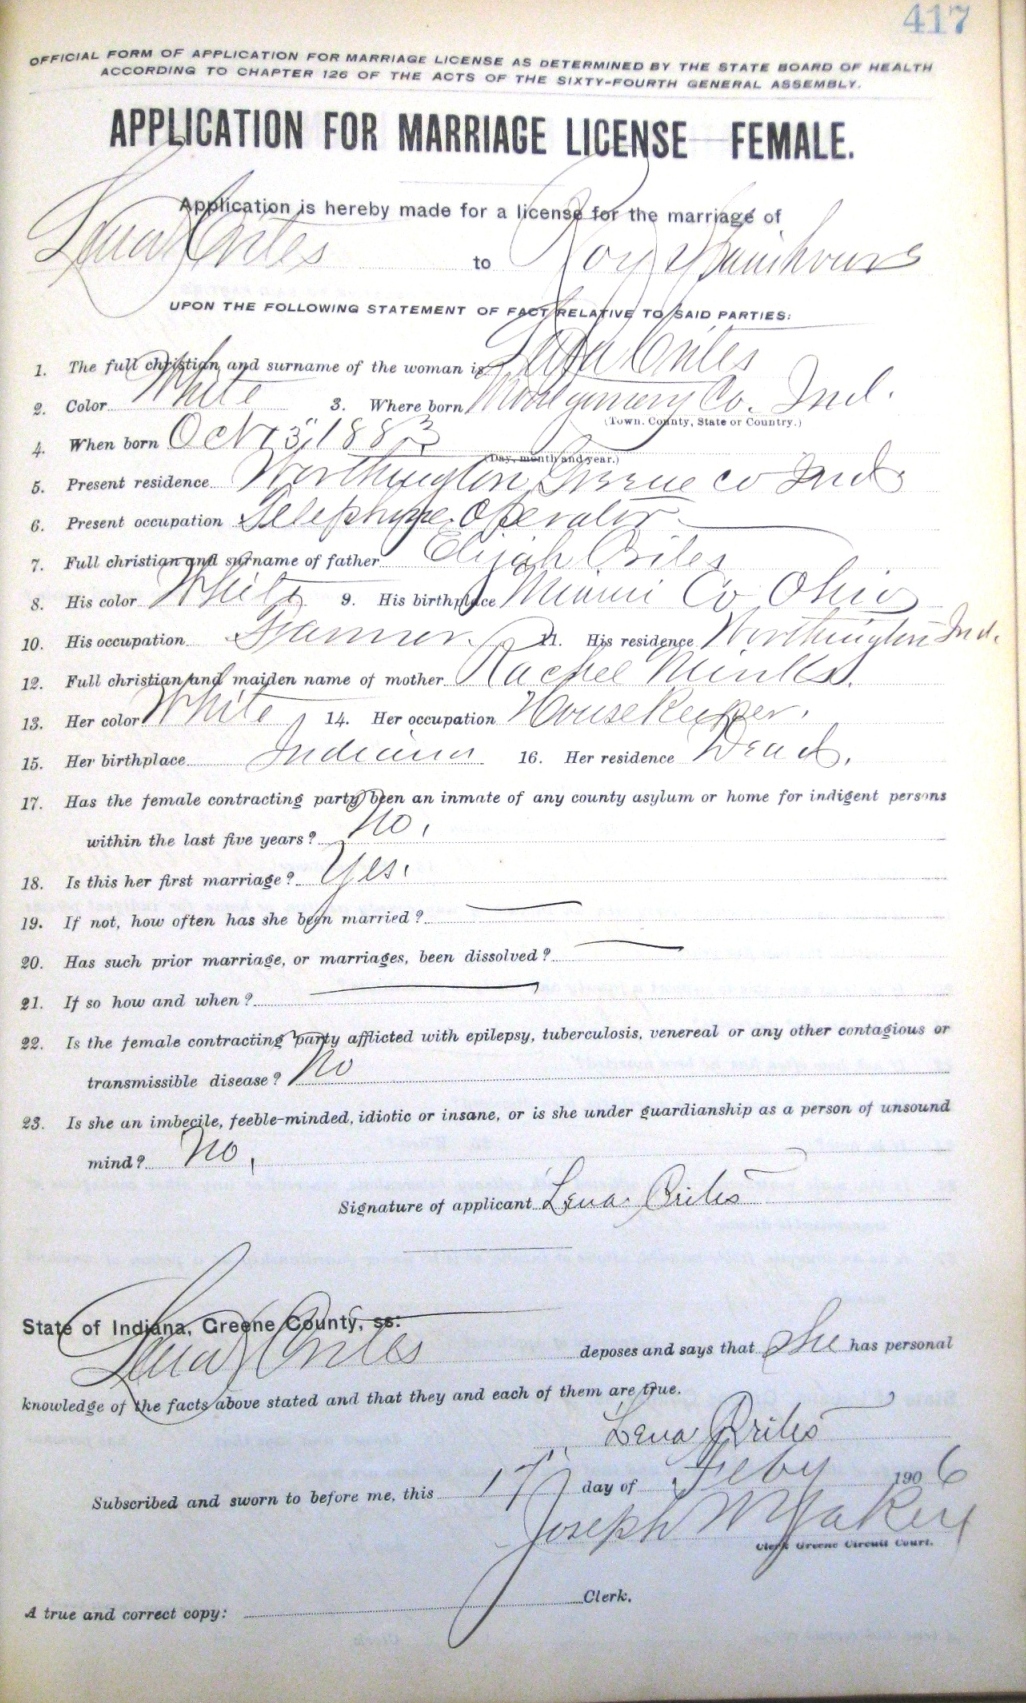 417
OFFICIAL FORM OF APPLICATION FOR MARRIAGE LICENSE AS DETERMINED BY THE STATE BOARD OF HEALTH
ACCORDING TO CHAPTER 126 OF THE ACTS OF THE SIXTY-FOURTH GENERAL ASSEMBLY.
APPLICATION FOR MARRIAGE LICENSE FEMALE.
Application is hereby made for a license for the marriage of
Lena Criles to Roy
UPON THE FOLLOWING STATEMENT OF FACT RELATIVE TO SAID PARTIES:
1. The full christian and surname of the woman is Lena Criles
2. Color White 3. Where born Montgomery Co. Ind.
(Town, County, State or Country.)
4. When born Oct 1883
(Day, month and year.)
5. Present residence Worthington Greene Co Ind
6. Present occupation Telephone Operator
7. Full christian and surname of father Elijah Criles
8. His color White 9. His birthplace Miami Co Ohio
10. His occupation Farmer 11. His residence Worthington Ind.
12. Full christian and maiden name of mother Rachel
13. Her color White 14. Her occupation Housekeeper.
15. Her birthplace Indiana 16. Her residence Dead.
17. Has the female contracting party been an inmate of any county asylum or home for indigent persons
within the last five years? No.
18. Is this her first marriage? Yes.
19. If not, how often has she been married?
20. Has such prior marriage, or marriages, been dissolved?
21. If so how and when?
22. Is the female contracting party afflicted with epilepsy, tuberculosis, venereal or any other contagious or
transmissible disease? No
23. Is she an imbecile, feeble-minded, idiotic or insane, or is she under guardianship as a person of unsound
mind? No.
Signature of applicant Lena Criles
State of Indiana, Greene County, ss:
Lena Criles deposes and says that She has personal
knowledge of the facts above stated and that they and each of them are true.
Lena Criles
Subscribed and sworn to before me, this 17" day of Feby 1906
Joseph W Yakey
Clerk Greene Circuit Court.
A true and correct copy: Clerk.